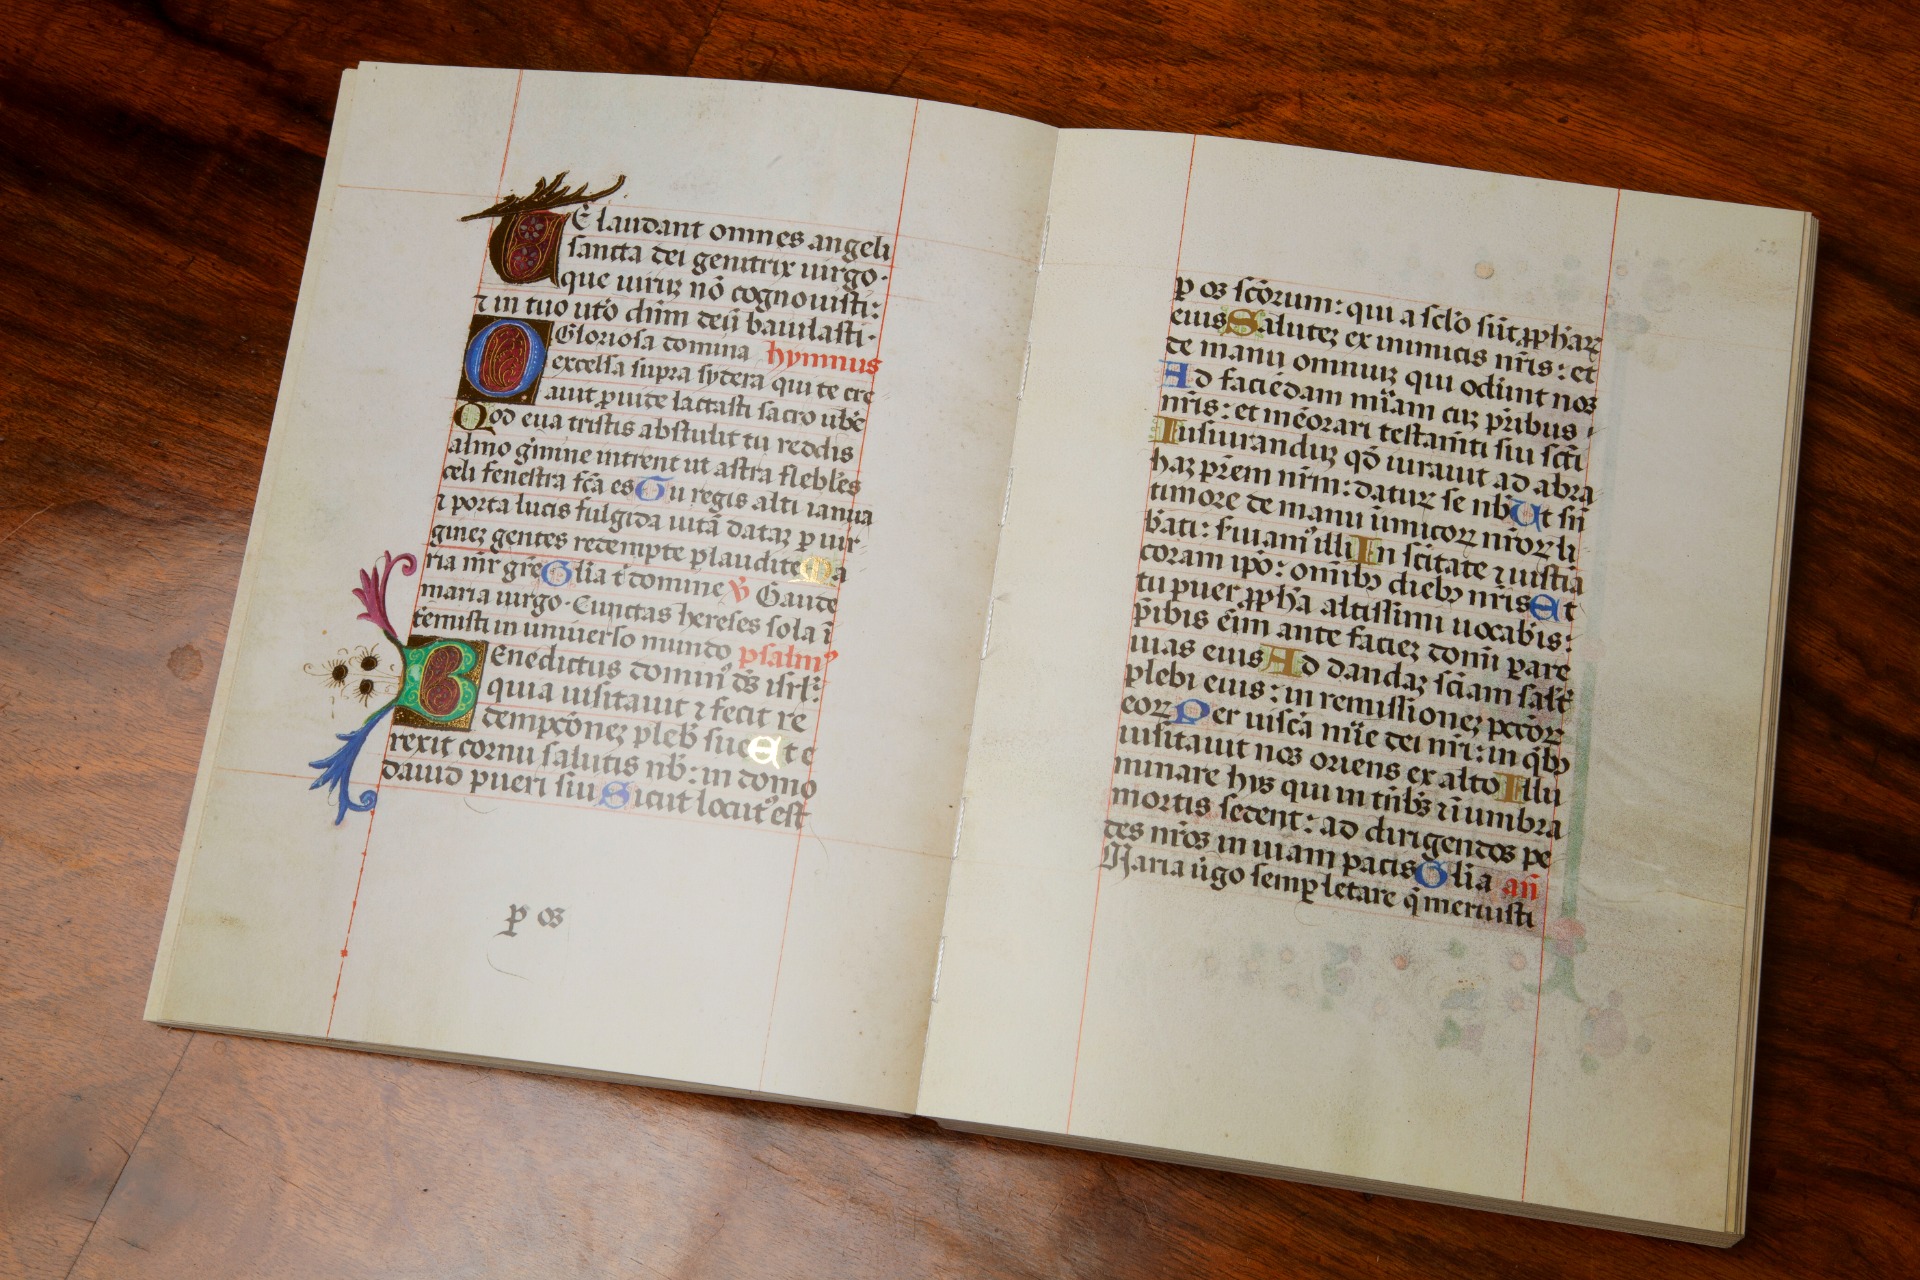 TE laudant omnes angeli
sancta dei genitrix uirgo·
que uiruz nō cognouisti:
⁊ in tuo utō dn̄m deū baiulasti·
O Gloriosa domina hymnus
excelsa supra sydera qui te cre
auit ꝓuide lactasti sacro ub̄e
Qod eua tristis abstulit tu reddis
almo gr̄mine intrent ut astra flebiles
celi fenestra fc̄a es Tu regis alti ianua
⁊ porta lucis fulgida uitā dataz ꝑ uir
ginez gentes redempte plaudite Ma
ria mr̄ grē Glīa t̄ domine ℣ Gaude
maria uirgo· Cunctas hereses sola ī
teremisti in uniuerso mundo psalmꝰ
BEnedictus domin̄ dē isrl̄:
quia uisitauit ⁊ fecit re
dempcōnez pleb̄ sue Et e
rexit cornu salutis nb̄: in domo
dauid pueri sui Sicut locutꝰ est
ꝑ os
ꝑ os sc̄orum: qui a sc̄lo sūt ꝓphaꝝ
eius Salutez ex inimicis nr̄is: et
de manu omniuz qui oderunt nos
Ad faciēdam mīam cuz pr̄ibus
nr̄is: et mēorari testam̄ti sui sc̄ti
Iusiuranduz qd̄ iurauit ad abra
haz pr̄em nr̄m: daturꝝ se nb̄ Ut sn̄
timore de manu īimicoꝝ nr̄oꝝ li
b̄ati: ẜuiamꝰ illi In sc̄itate ⁊ iustīa
coram ip̄o: omībꝫ diebꝫ nr̄is Et
tu puer ꝓpha altissimi uocab̄is:
p̄ibis eīm ante faciez domī pare
uias eius Ad dandaz sciam salt̄
plebi eius: in remissionez pcc̄oꝝ
eoꝝ Per uisc̄a mīe dei nr̄i: in qb̄ꝫ
uisitauit nos oriens ex alto Illu
minare hys qui in tn̄bꝫ ⁊ ī umbra
mortis sedent: ad dirigendos pe
des nr̄os in uiam pacis Glīa an̄
Maria ūgo semꝑ letare q̄ meruisti